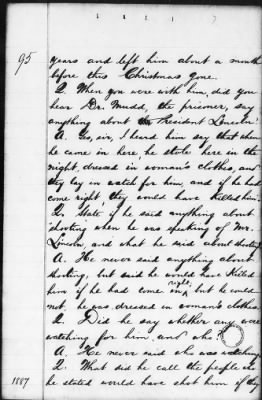 95
years and left him about a month
before this Christmas gone.
Q. When you were with him, did you
hear Dr. Mudd, the prisoner, say
anything about President Lincoln?
A. Yes, sir, I heard him say that when
he came in here, he stole here in the
night, dressed in woman's clothes, and
they lay in watch for him, and if he had
come right they could have killed him.
Q. State if he said anything about
shooting when he was speaking of Mr.
Lincoln, and what he said about shooting?
A. He never said anything about
shooting, but said he would have killed
him if he had come in right, but he could
not, he was dressed in woman's clothes.
Q. Did he say whether any were
watching for him, and who?
A. He never said who was watching.
Q. What did he call the people who
he stated would have shot him if they
1887